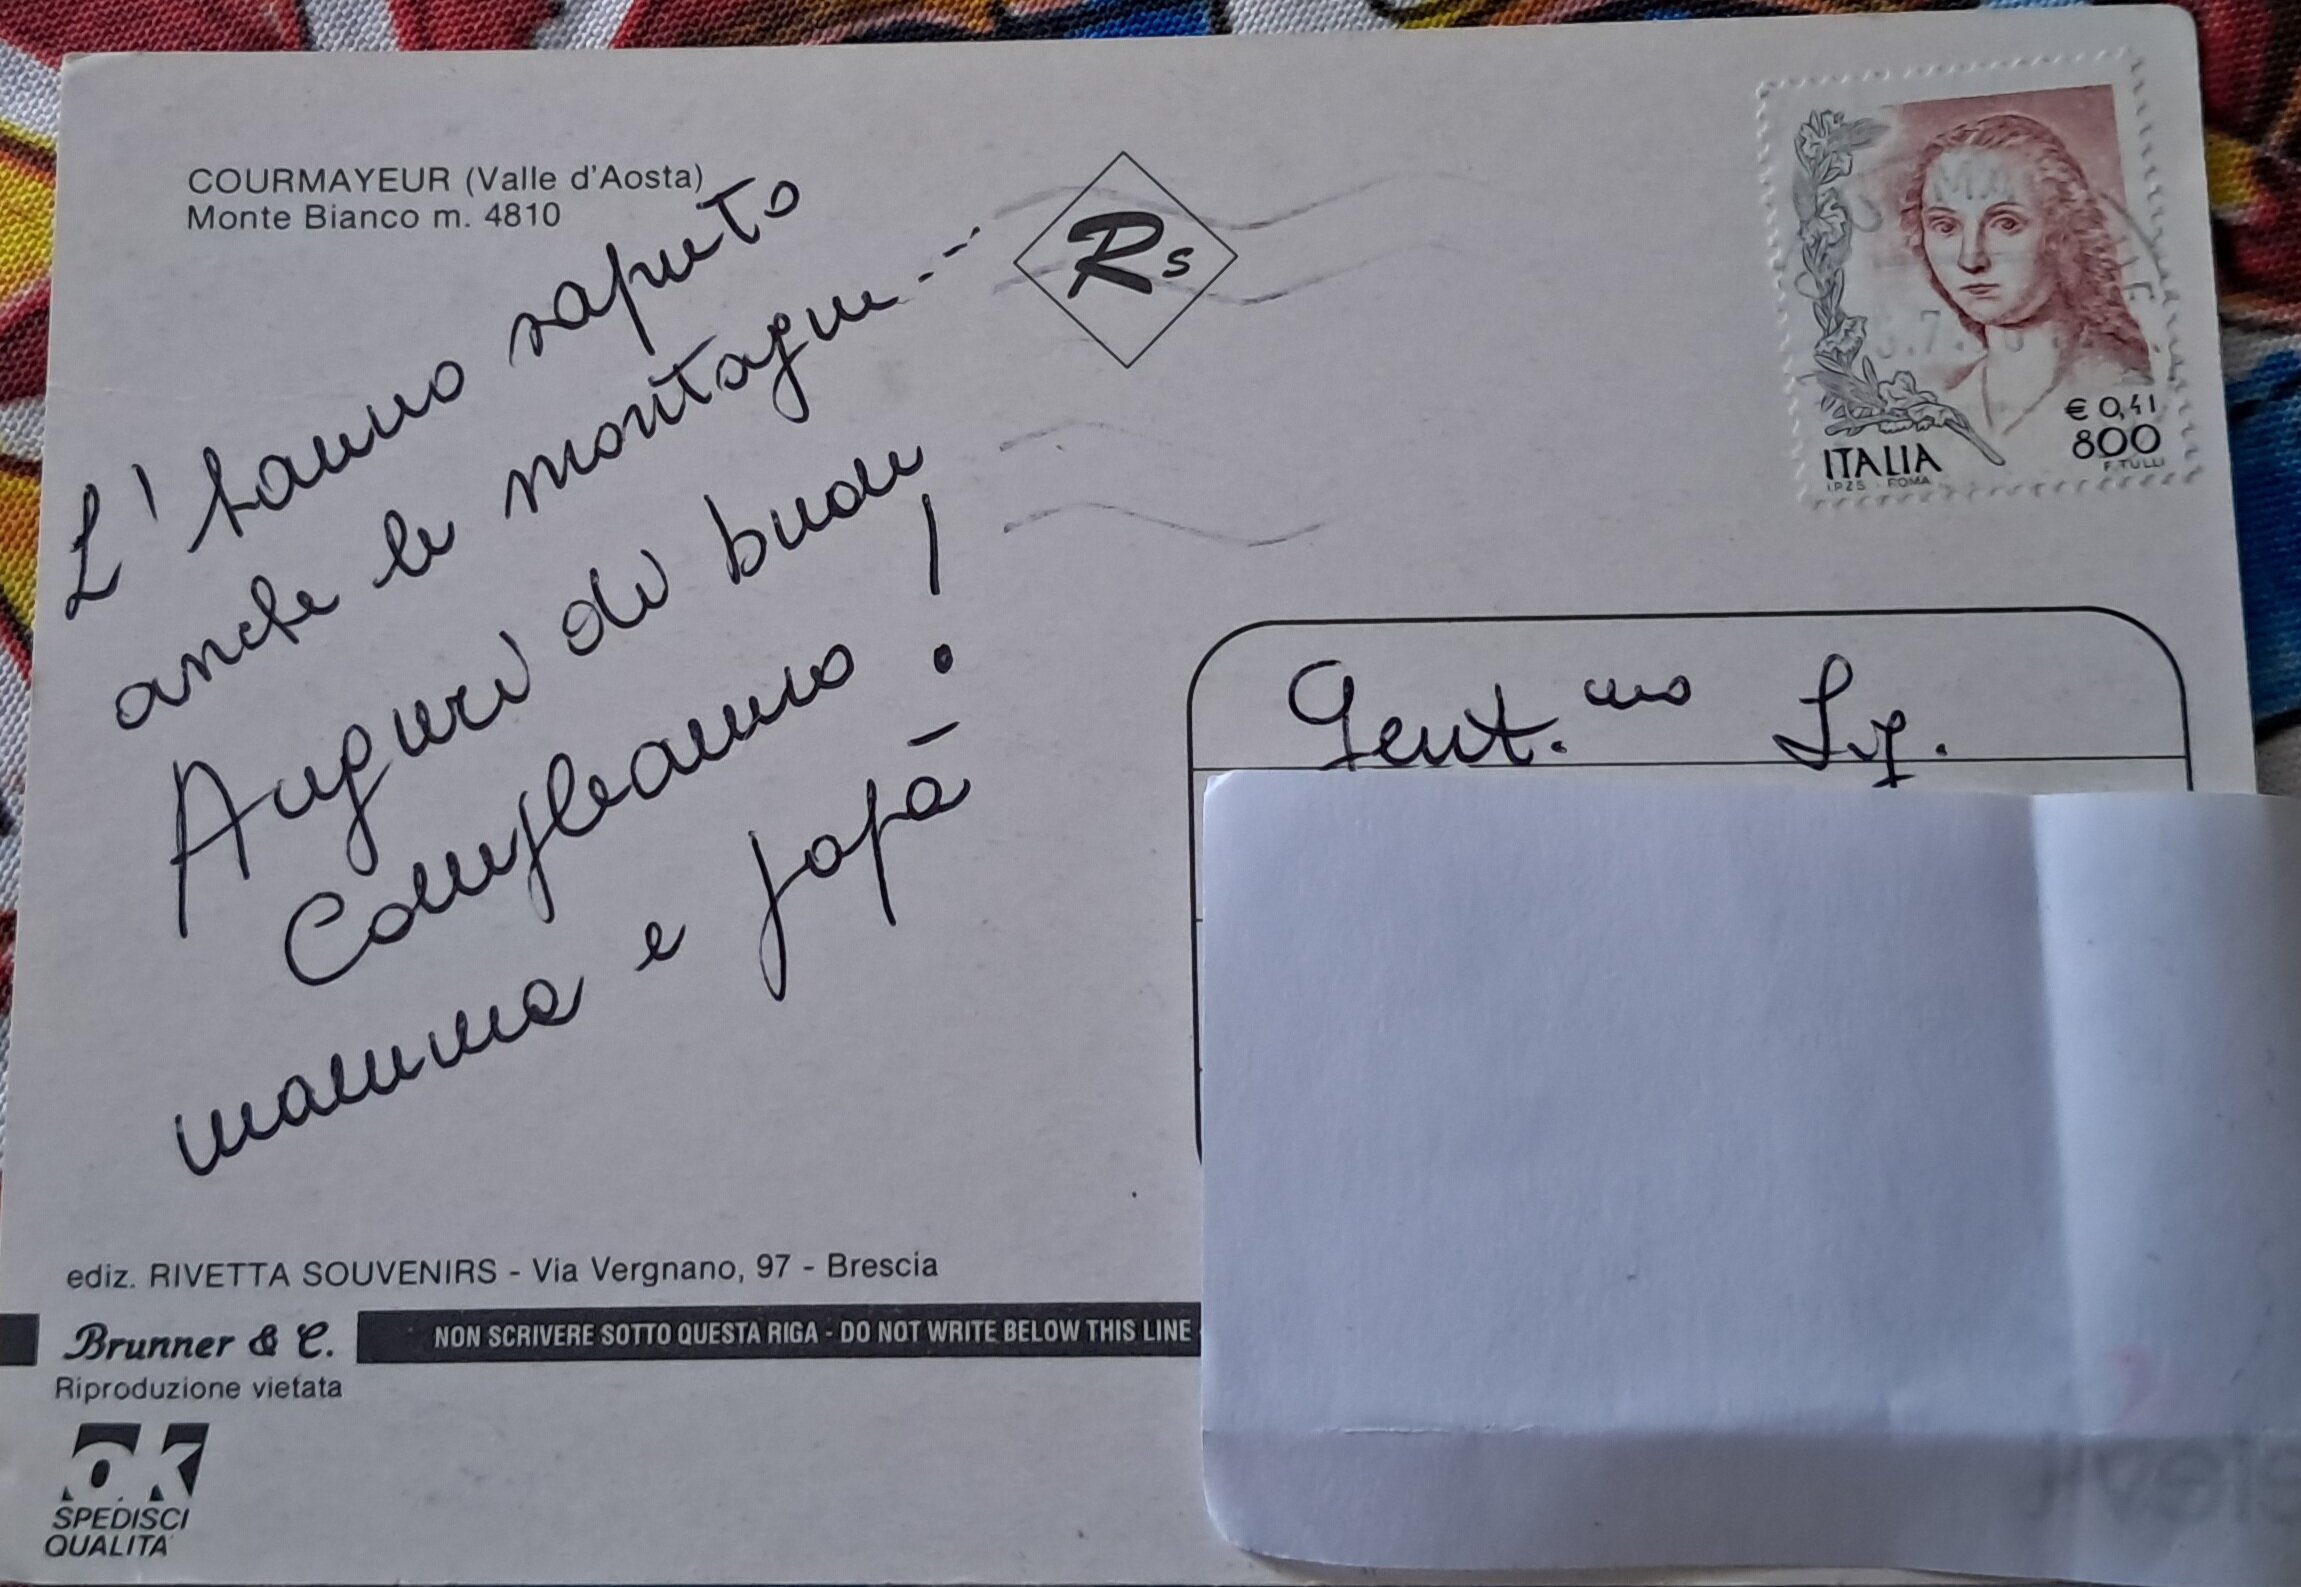 COURMAYEUR (Valle d'Aosta)
Monte Bianco m. 4810
L'hanno saputo
anche le montagne...
Auguri di buon
Compleanno!
mamma e papà
Rs
ITALIA
€ 0,41
800
F. TULLI
I.P.Z.S. - ROMA
Gent.mo Sig.
ediz. RIVETTA SOUVENIRS - Via Vergnano, 97 - Brescia
Brunner & C.
NON SCRIVERE SOTTO QUESTA RIGA - DO NOT WRITE BELOW THIS LINE
Riproduzione vietata
O.K
SPEDISCI
QUALITA'